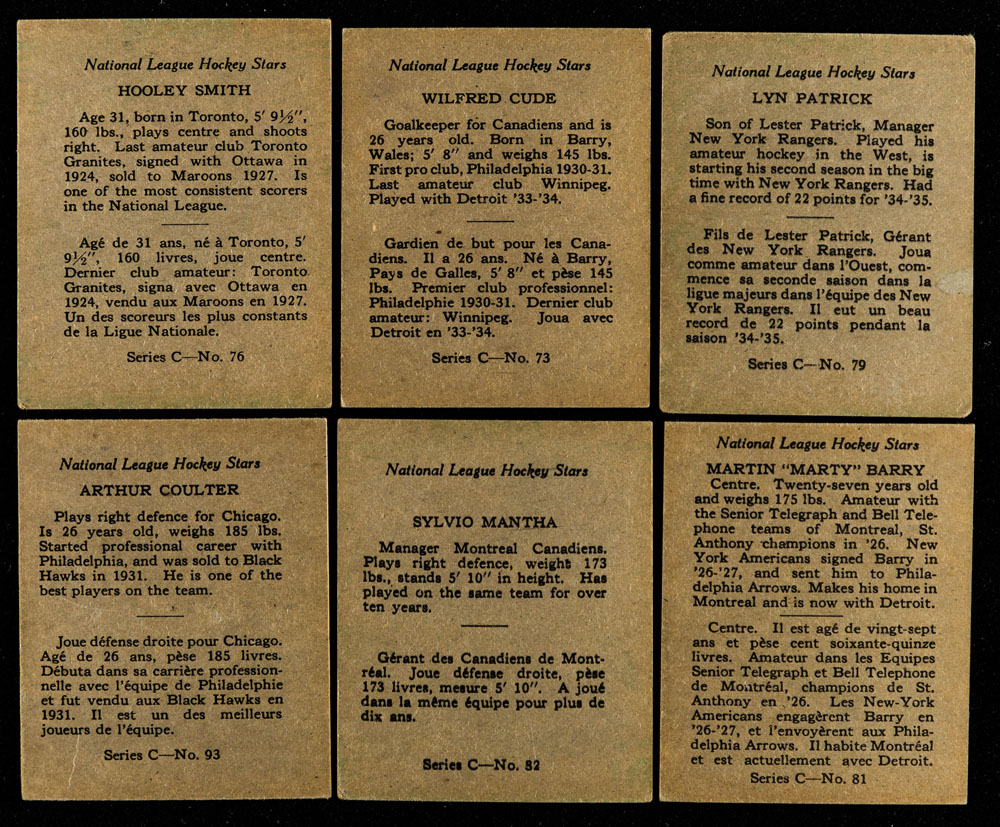 National League Hockey Stars
HOOLEY SMITH
Age 31, born in Toronto, 5' 9½",
160 lbs., plays centre and shoots
right. Last amateur club Toronto
Granites, signed with Ottawa in
1924, sold to Maroons 1927. Is
one of the most consistent scorers
in the National League.
Agé de 31 ans, né à Toronto, 5'
9½", 160 livres, joue centre.
Dernier club amateur: Toronto
Granites, signa avec Ottawa en
1924, vendu aux Maroons en 1927.
Un des scoreurs les plus constants
de la Ligue Nationale.
Series C—No. 76
National League Hockey Stars
WILFRED CUDE
Goalkeeper for Canadiens and is
26 years old. Born in Barry,
Wales; 5' 8" and weighs 145 lbs.
First pro club, Philadelphia 1930-31.
Last amateur club Winnipeg.
Played with Detroit '33-'34.
Gardien de but pour les Cana-
diens. Il a 26 ans. Né à Barry,
Pays de Galles, 5' 8" et pèse 145
lbs. Premier club professionnel:
Philadelphie 1930-31. Dernier club
amateur: Winnipeg. Joua avec
Detroit en '33-'34.
Series C—No. 73
National League Hockey Stars
LYN PATRICK
Son of Lester Patrick, Manager
New York Rangers. Played his
amateur hockey in the West, is
starting his second season in the big
time with New York Rangers. Had
a fine record of 22 points for '34-'35.
Fils de Lester Patrick, Gérant
des New York Rangers. Joua
comme amateur dans l'Ouest, com-
mence sa seconde saison dans la
ligue majeurs dans l'équipe des New
York Rangers. Il eut un beau
record de 22 points pendant la
saison '34-'35.
Series C—No. 79
National League Hockey Stars
ARTHUR COULTER
Plays right defence for Chicago.
Is 26 years old, weighs 185 lbs.
Started professional career with
Philadelphia, and was sold to Black
Hawks in 1931. He is one of the
best players on the team.
Joue défense droite pour Chicago.
Agé de 26 ans, pèse 185 livres.
Débuta dans sa carrière profession-
nelle avec l'équipe de Philadelphie
et fut vendu aux Black Hawks en
1931. Il est un des meilleurs
joueurs de l'équipe.
Series C—No. 93
National League Hockey Stars
SYLVIO MANTHA
Manager Montreal Canadiens.
Plays right defence, weight 173
lbs., stands 5' 10" in height. Has
played on the same team for over
ten years.
Gérant des Canadiens de Mont-
réal. Joue défense droite, pèse
173 livres, mesure 5' 10". A joué
dans la même équipe pour plus de
dix ans.
Series C—No. 82
National League Hockey Stars
MARTIN "MARTY" BARRY
Centre. Twenty-seven years old
and weighs 175 lbs. Amateur with
the Senior Telegraph and Bell Tele-
phone teams of Montreal, St.
Anthony champions in '26. New
York Americans signed Barry in
'26-'27, and sent him to Phila-
delphia Arrows. Makes his home in
Montreal and is now with Detroit.
Centre. Il est agé de vingt-sept
ans et pèse cent soixante-quinze
livres. Amateur dans les Equipes
Senior Telegraph et Bell Telephone
de Montréal, champions de St.
Anthony en '26. Les New-York
Americans engagèrent Barry en
'26-'27, et l'envoyèrent aux Phila-
delphia Arrows. Il habite Montréal
et est actuellement avec Detroit.
Series C—No. 81